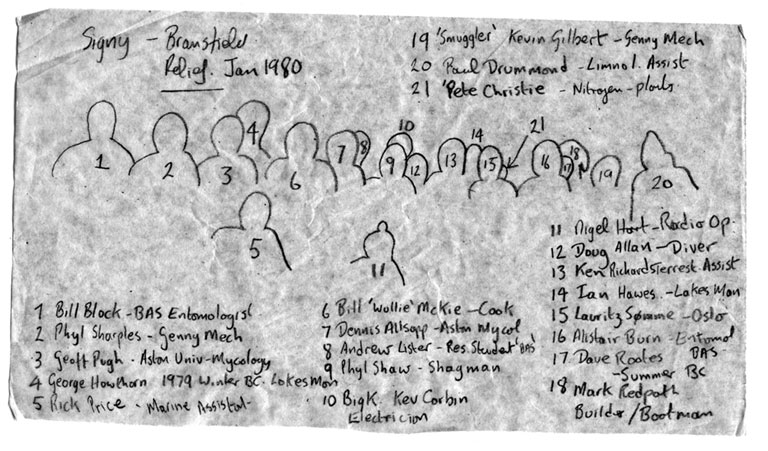 Signy - Bransfield
Relief. Jan 1980
19 'Smuggler' Kevin Gilbert - Genny Mech
20 Paul Drummond - Limnol. Assist
21 'Pete Christie - Nitrogen - plots
1
2
3
4
5
6
7
8
9
10
11
12
13
14
15
16
17
18
19
20
21
1 Bill Block - BAS Entomologist
2 Phyl Sharples - Genny Mech
3 Geoff Pugh - Aston Univ - Mycology
4 George Howthorn 1979 Winter BC. Lakes Man
5 Rick Price - Marine Assistat
6 Bill 'Wollie' McKie - Cook
7 Dennis Allsopp - Aston Mycol
8 Andrew Lister - Res. Student BAS
9 Phyl Shaw - Shagman
10 Big K. Kev Corbin
Electrician
11 Nigel Hart - Radio Op.
12 Doug Allan - Diver
13 Ken Richards Terrest. Assist
14 Ian Hawes - Lakes Man
15 Lauritz Sømme - Oslo
16 Alistair Burn - Entomol
BAS
17 Dave Rootes
- Summer BC
18 Mark Redpath
Builder / Boatman